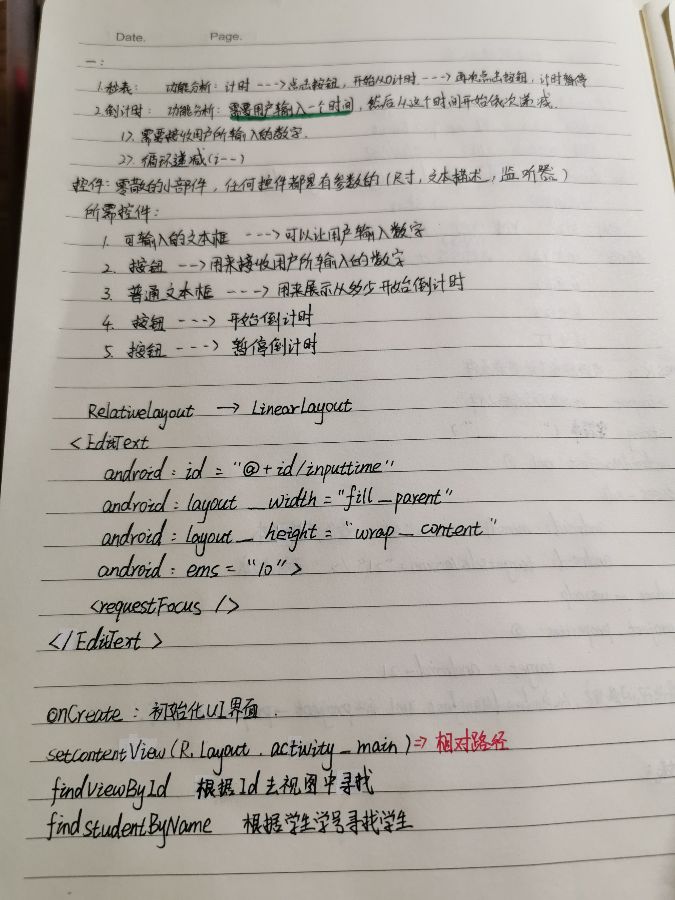 Date. Page.
一:
1.秒表: 功能分析: 计时 ---> 点击按钮, 开始从0计时 ---> 再次点击按钮, 计时暂停
2.倒计时: 功能分析: 需要用户输入一个时间, 然后从这个时间开始依次递减.
1>. 需要接收用户所输入的数字.
2>. 循环递减(i--)
控件: 零散的小部件, 任何控件都是有参数的 (尺寸, 文本描述, 监听器)
所需控件:
1. 可输入的文本框 ---> 可以让用户输入数字
2. 按钮 --> 用来接收用户所输入的数字
3. 普通文本框 ---> 用来展示从多少开始倒计时
4. 按钮 ---> 开始倒计时
5. 按钮 ---> 暂停倒计时
Relativelayout → LinearLayout
<EditText
android: id = "@+id/inputtime"
android: layout_width = "fill_parent"
android: layout_height = "wrap_content"
android: ems = "10">
<requestFocus />
</EditText>
onCreate: 初始化UI界面.
setcontentView(R.layout.activity_main) => 相对路径
findViewById 根据Id去视图中寻找
findstudentByName 根据学生学号寻找学生